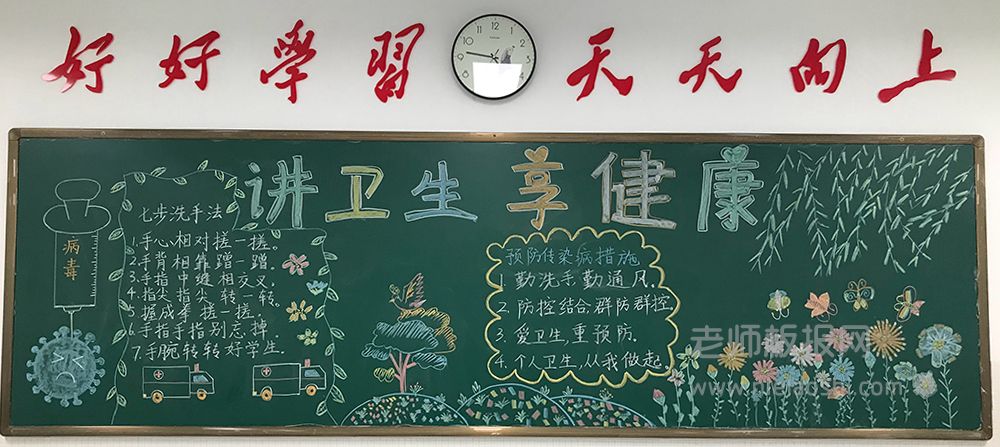 好好學習 天天向上
讲卫生 享健康
病毒
七步洗手法
1.手心相对搓一搓。
2.手背相靠蹭一蹭。
3.手指中缝相交叉,
4.指尖指尖转一转。
5.握成拳搓一搓。
6.手指手指别忘掉
7.手腕转转好学生.
预防传染病措施
1.勤洗手勤通风.
2.防控结合,群防群控.
3.爱卫生,重预防.
4.个人卫生,从我做起
老师板报网